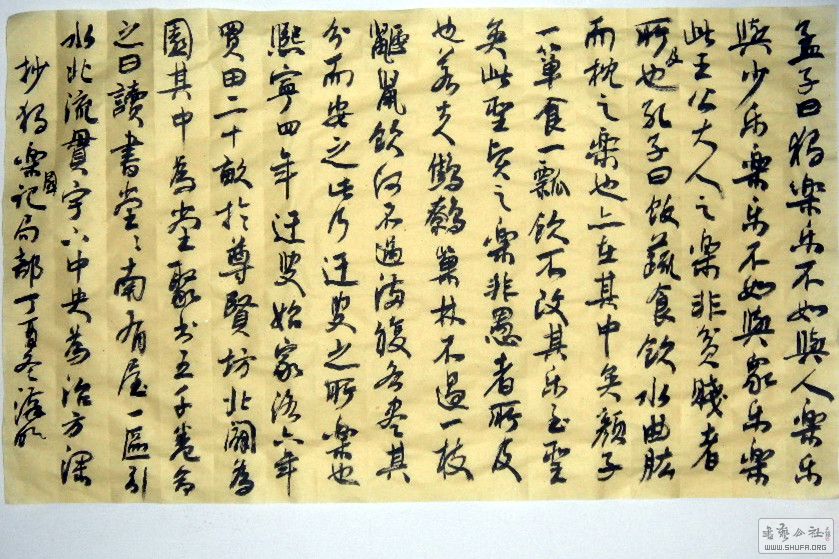 孟子曰独樂乐不如與人樂乐
與少乐樂乐不如與衆乐樂
此王公大人之樂非贫賤者
所及也孔子曰飯蔬食飲水曲肱
而枕之樂也亦在其中矣颜子
一箪食一瓢飲不改其乐至聖
矣此聖贤之樂非愚者所及
也若夫鷦鷯巢林不過一枝
鼹鼠飲河不過满腹各盡其
分而安之此乃迂叟之所樂也
熙寧四年迂叟始家洛六年
買田二十畝於尊賢坊北關為
園其中為堂聚书五千卷命
之曰讀書堂〻南有屋一區引
水北流貫宇下中央為沼方深
抄独樂園记局部丁酉冬
WWW.SHUFA.ORG